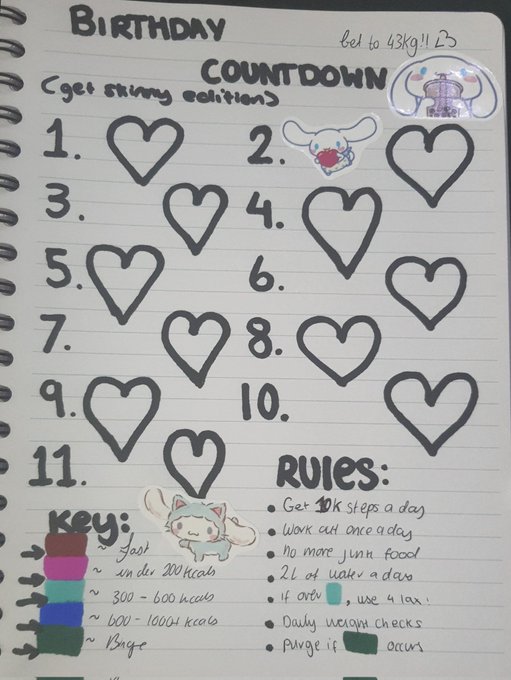 BIRTHDAY
get to 43kg!! <3
COUNTDOWN
(get skinny edition)
1.
2.
3.
4.
5.
6.
7.
8.
9.
10.
11.
RULES:
• Get 10K steps a day
• Work out once a day
• No more junk food
• 2L of water a day
• if over , use 4 lax!
• Daily weight checks
• Purge if occurs
Key:
~ Fast
~ under 200kcals
~ 300 - 600kcals
~ 600 - 1000+ kcals
~ Binge